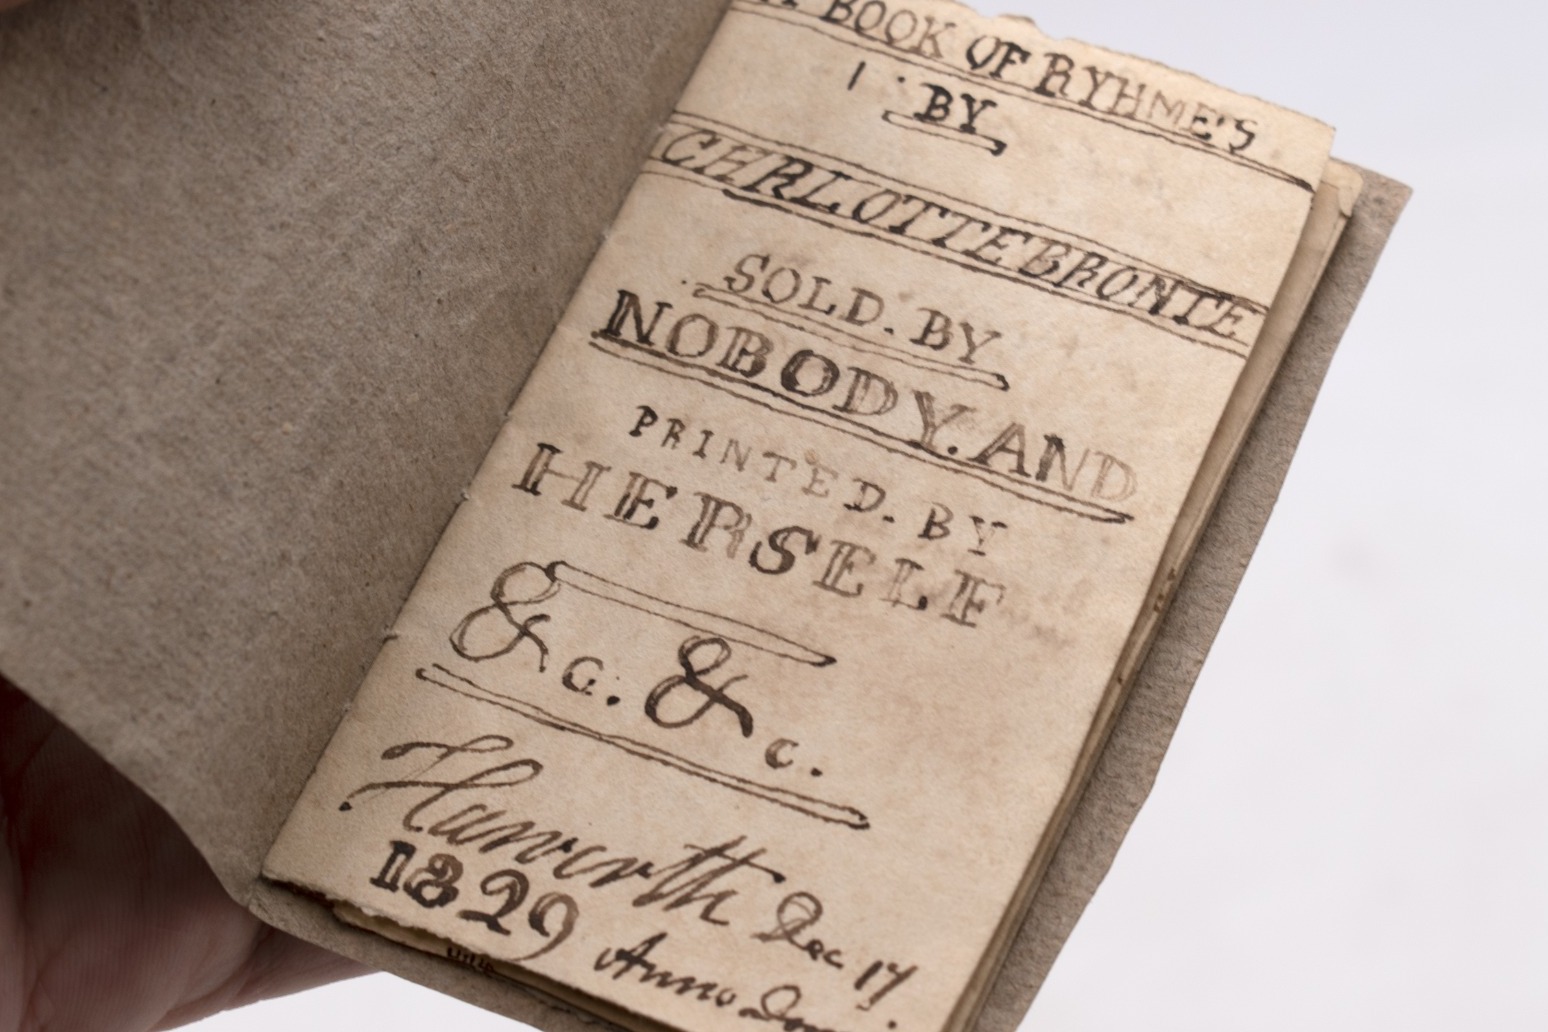 A BOOK OF RYHME'S
BY
CHRLOTTE BRONTE
SOLD. BY
NOBODY. AND
PRINTED. BY
HERSELF
&c. &c.
Haworth Dec 17
1829 Anno Dom